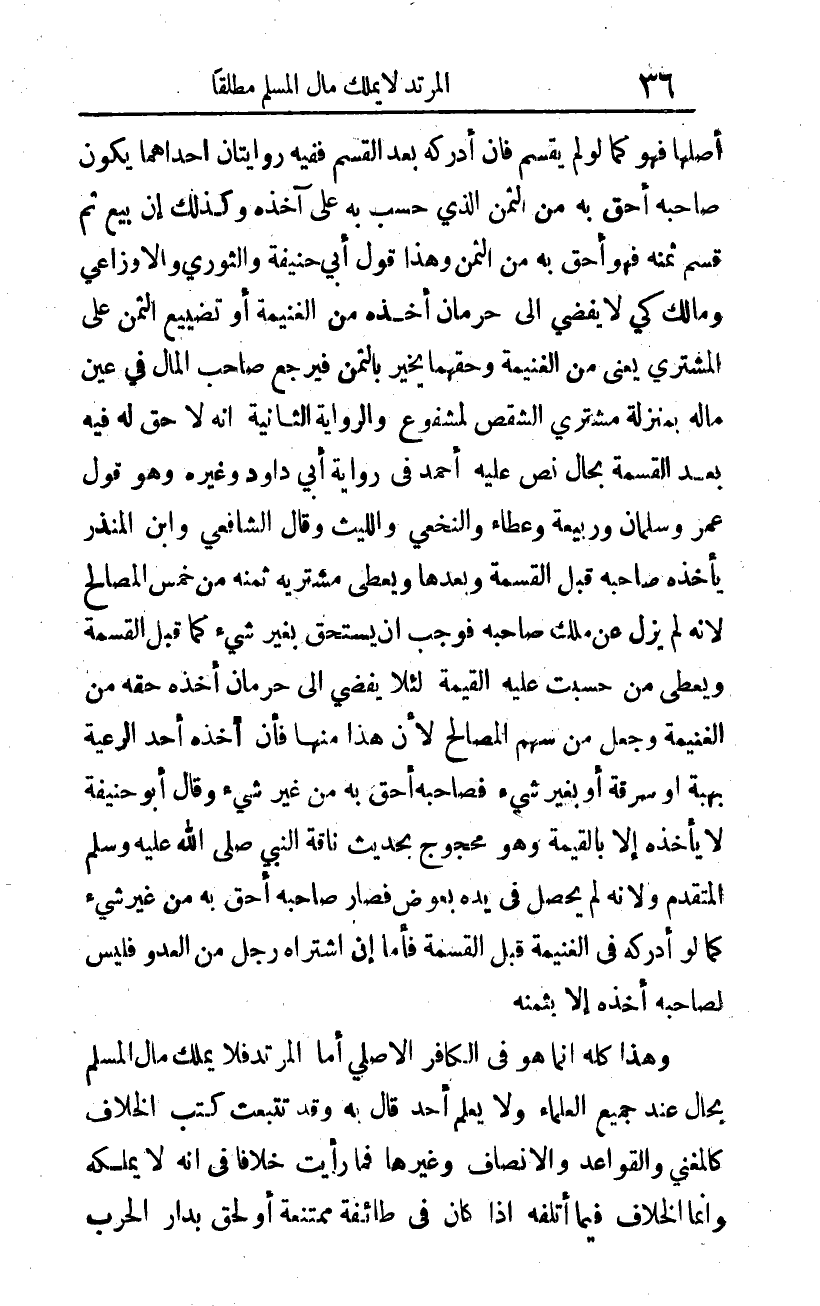 ٣٦ المرتد لا يملك مال المسلم مطلقاً
أصلها فهو كما لو لم يقسم فان أدركه بعد القسم ففيه روايتان احداهما يكون
صاحبه أحق به من الثمن الذي حسب به على آخذه وكذلك إن بيع ثم
قسم ثمنه فهو أحق به من الثمن وهذا قول أبي حنيفة والثوري والاوزاعي
ومالك كي لا يفضي الى حرمان أخذه من الغنيمة أو تضييع الثمن على
المشتري يعنى من الغنيمة وحقهما يخير بالثمن فيرجع صاحب المال في عين
ماله بمنزلة مشتري الشقص لمشفوع والرواية الثانية انه لا حق له فيه
بعد القسمة بحال نص عليه أحمد فى رواية أبي داود وغيره وهو قول
عمر وسلمان وربيعة وعطاء والنخعي والليث وقال الشافعي وابن المنذر
يأخذه صاحبه قبل القسمة وبعدها ويعطى مشتريه ثمنه من خمس المصالح
لانه لم يزل عن ملك صاحبه فوجب ان يستحق بغير شيء كما قبل القسمة
ويعطى من حسبت عليه القيمة لئلا يفضي الى حرمان أخذه حقه من
الغنيمة وجعل من سهم المصالح لأن هذا منها فأن أخذه أحد الرعية
بهبة او سرقة أو بغير شيء فصاحبه أحق به من غير شيء وقال أبو حنيفة
لا يأخذه إلا بالقيمة وهو محجوج بحديث ناقة النبي صلى الله عليه وسلم
المتقدم ولانه لم يحصل فى يده بعوض فصار صاحبه أحق به من غير شيء
كما لو أدركه فى الغنيمة قبل القسمة فأما إن اشتراه رجل من العدو فليس
لصاحبه أخذه إلا بثمنه
وهذا كله انما هو فى الكافر الاصلي أما المرتد فلا يملك مال المسلم
بحال عند جميع العلماء ولا يعلم أحد قال به وقد تتبعت كتب الخلاف
كالمغني والقواعد والانصاف وغيرها فما رأيت خلافا فى انه لا يملكه
وانما الخلاف فيما أتلفه اذا كان فى طائفة ممتنعة أو لحق بدار الحرب